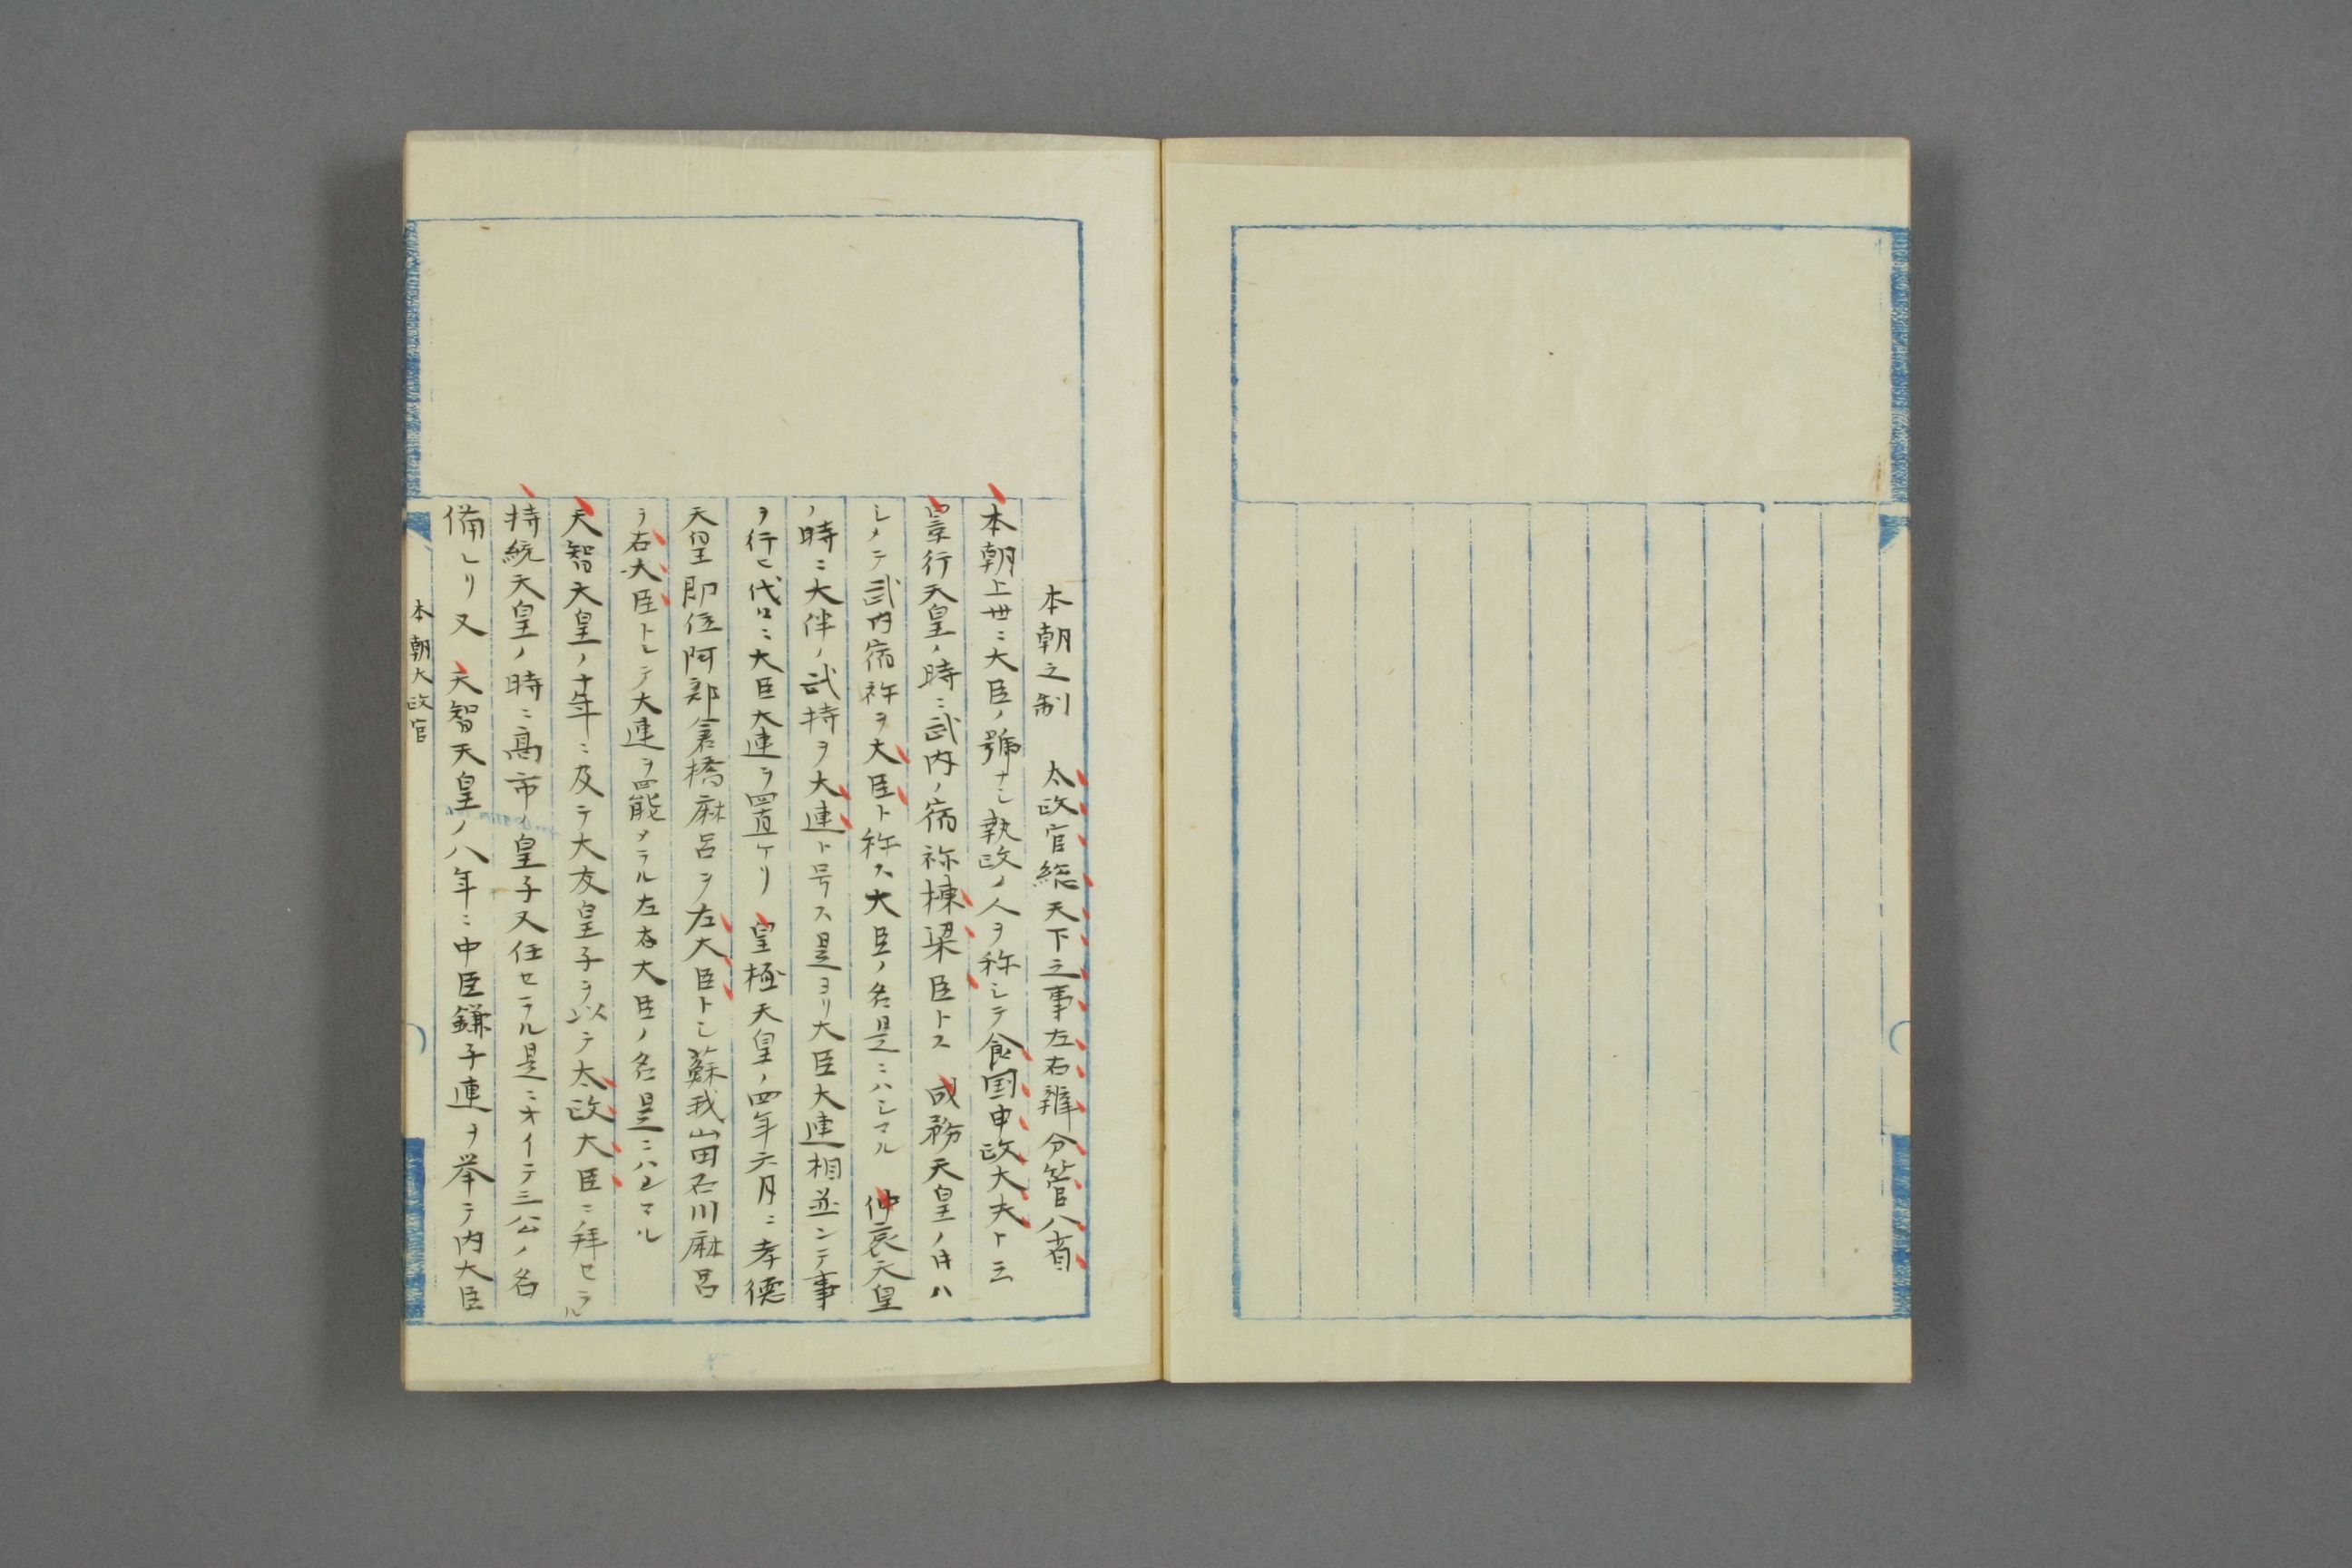 本朝之制　太政官総天下之事左右辨分管八省
本朝上世ニ大臣ノ號ナシ執政ノ人ヲ称シテ食国申政大夫ト云
景行天皇ノ時ニ武内ノ宿祢棟梁臣トス　成務天皇ノ時ハ
シメテ武内宿祢ヲ大臣ト称ス大臣ノ名是ニハシマル　仲哀天皇
ノ時ニ大伴ノ武持ヲ大連ト号ス是ヨリ大臣大連相並ンテ事
ヲ行ヒ代々ニ大臣大連ヲ置ケリ　皇極天皇ノ四年六月ニ孝徳
天皇即位阿部倉橋麻呂ヲ左大臣トシ蘇我山田石川麻呂
ヲ右大臣トシテ大連ヲ罷メラル左右大臣ノ名是ニハシマル
天智天皇ノ十年ニ及テ大友皇子ヲ以テ太政大臣ニ拜セラル
持統天皇ノ時ニ高市ノ皇子又任セラル是ニオイテ三公ノ名
備レリ又　天智天皇ノ八年ニ中臣鎌子連ヲ举テ内大臣
本朝大政官